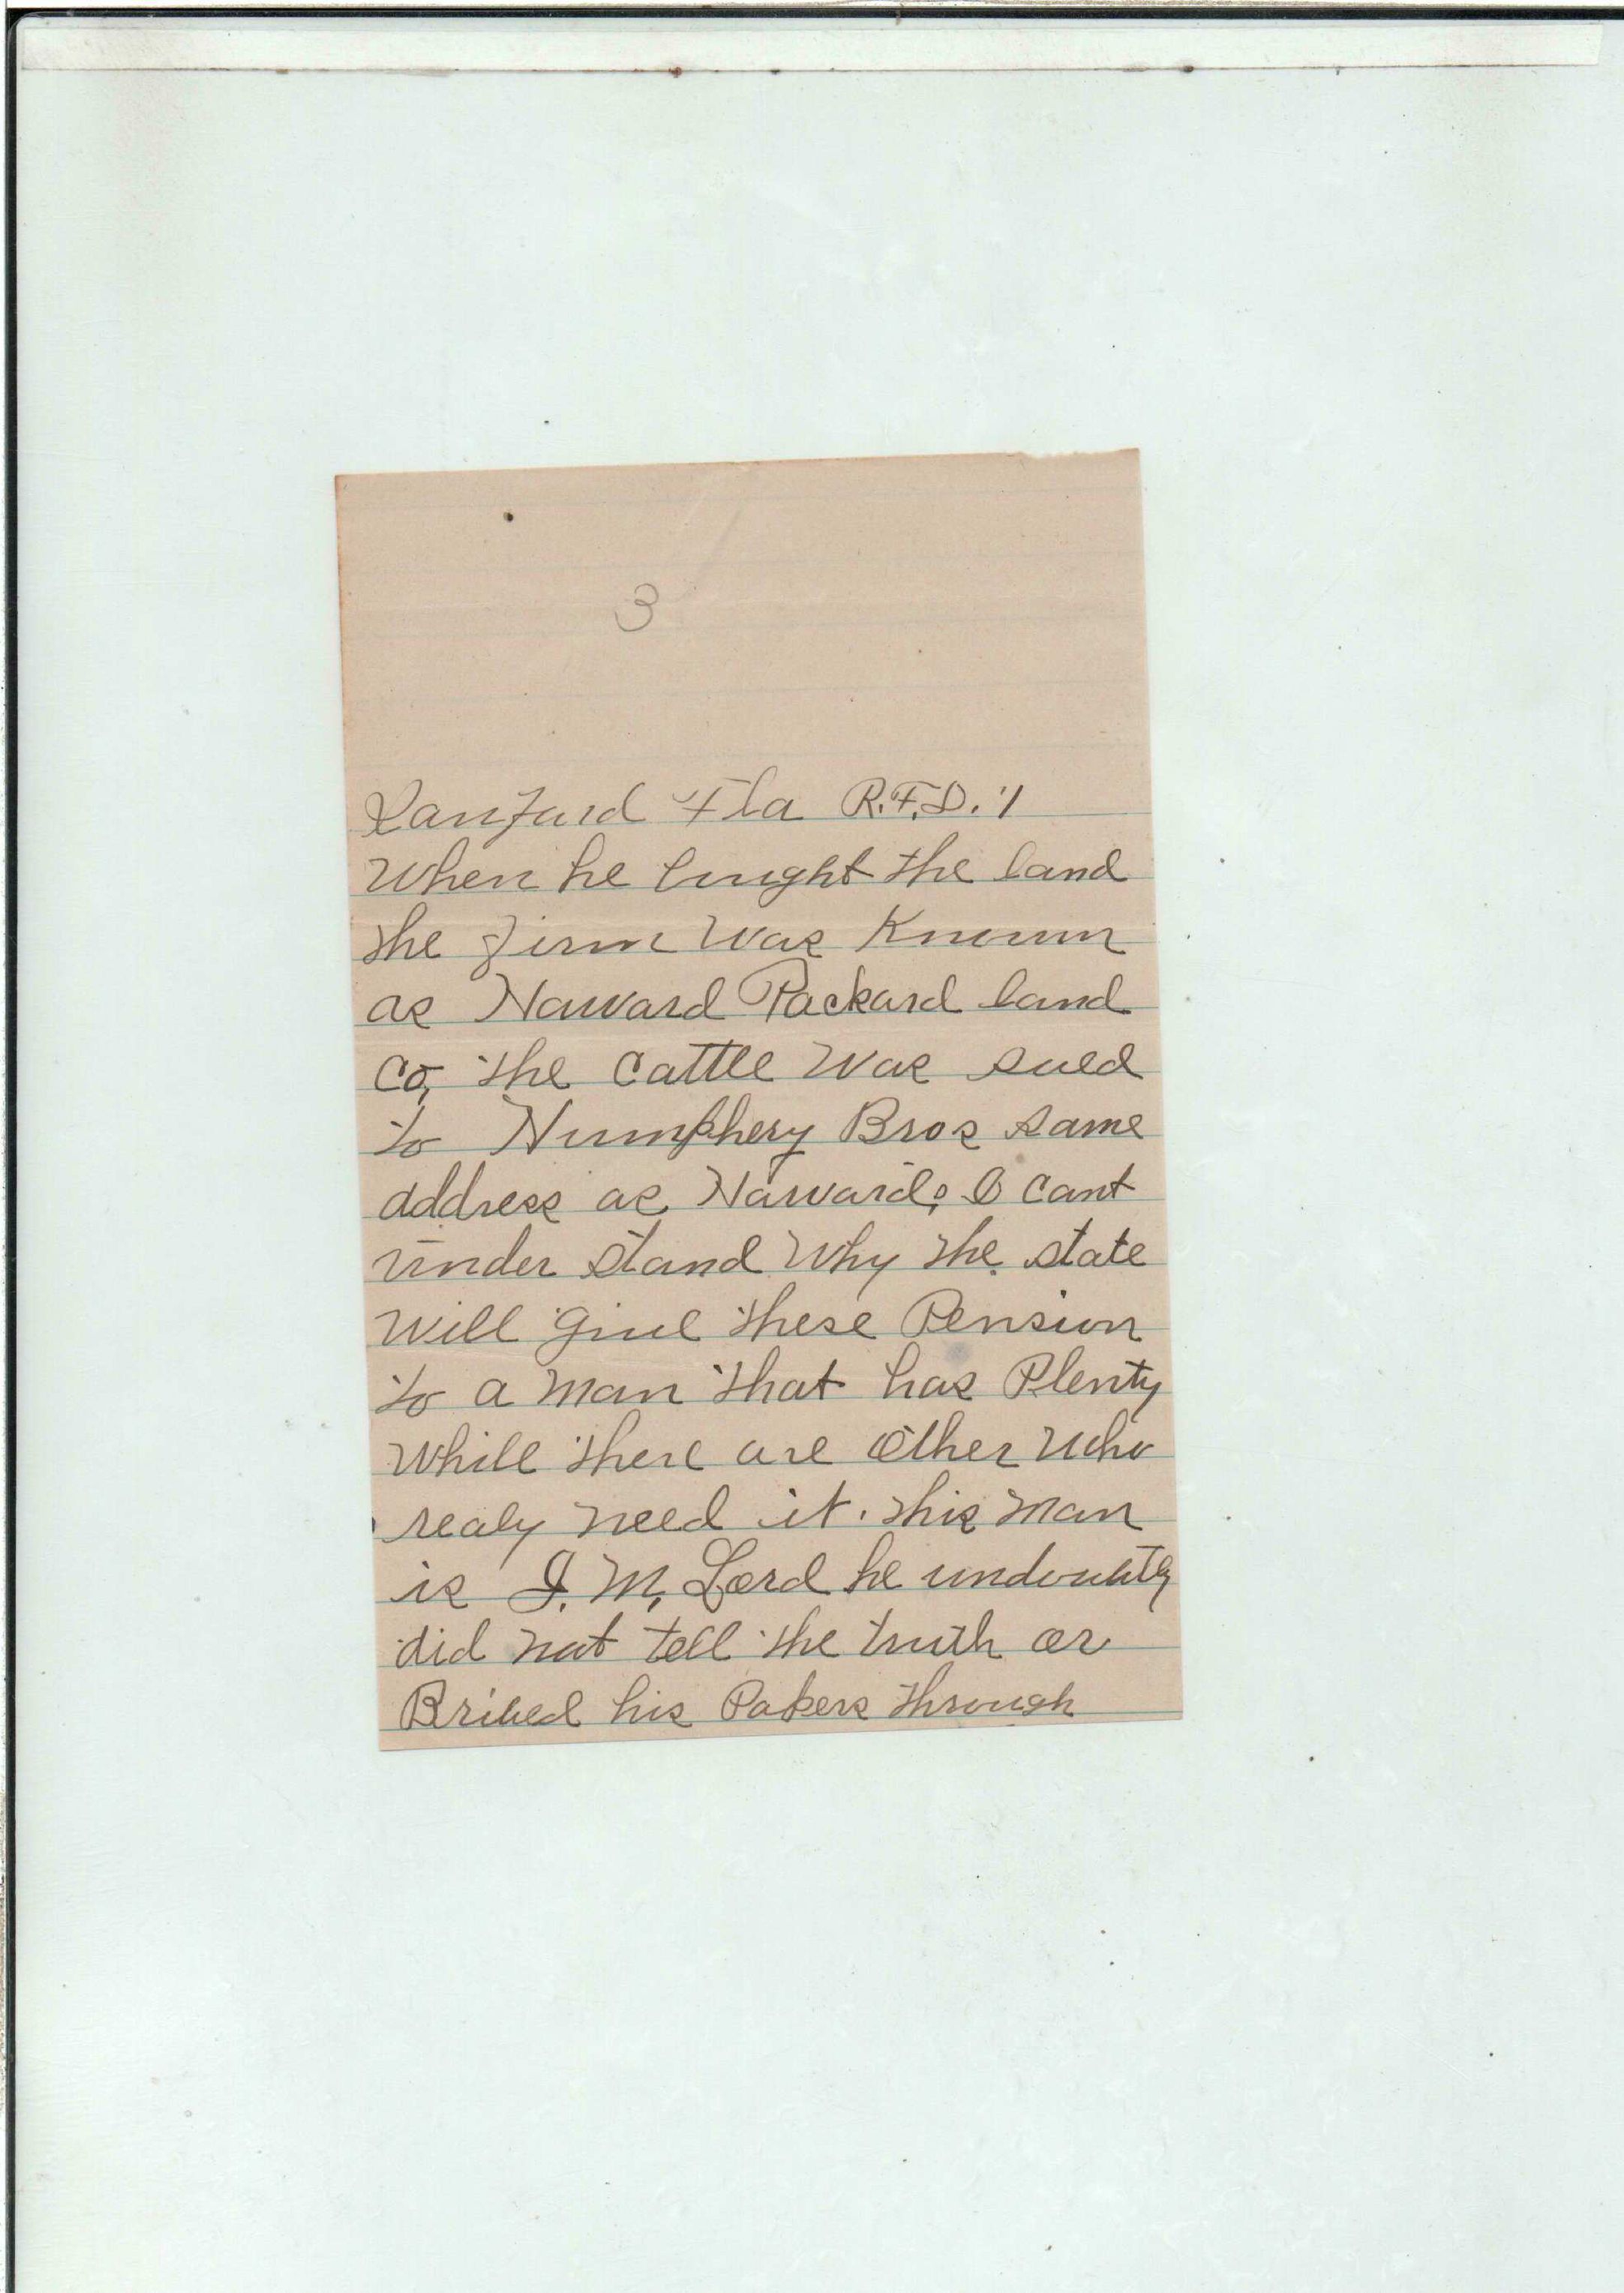 3
Sanford Fla R.F.D. 1
When he bought the land
the firm was Known
as Howard Packard land
co, the cattle was sued
to Humphery Bros same
address as Howard; I cant
under stand why the state
will give these Pension
to a man that has Plenty
while there are other who
realy need it. this man
is J. M. Lord he undoubtly
did not tell the truth or
Bribed his Papers through